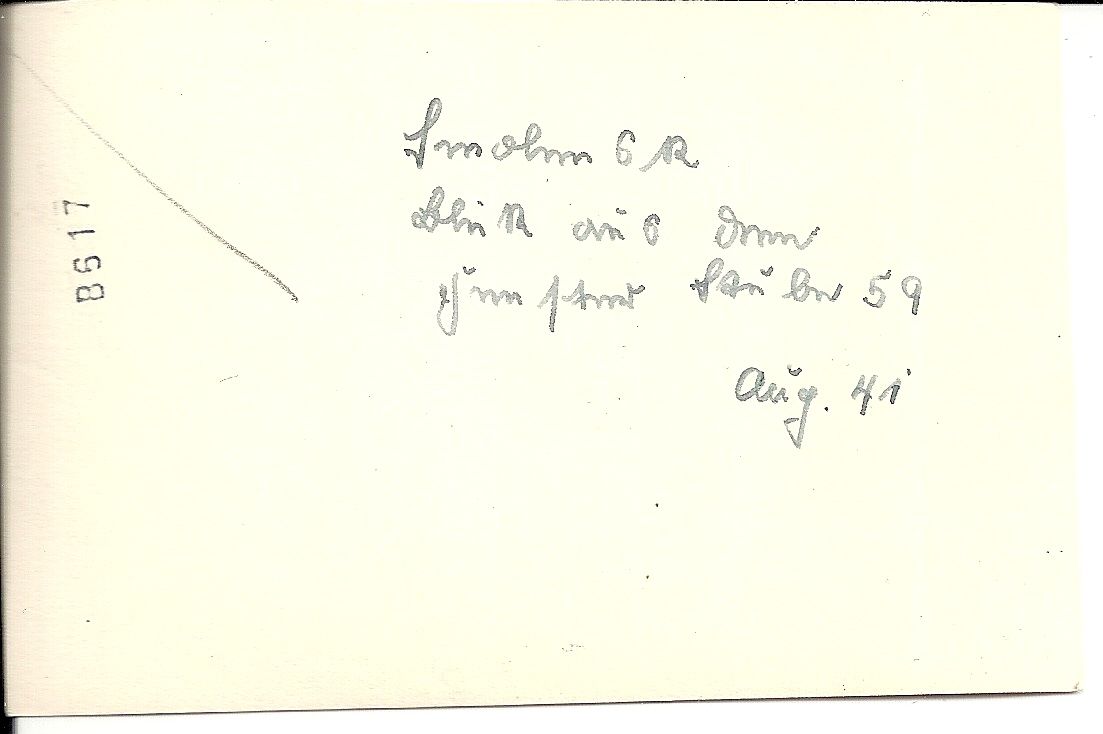 Smolensk
Blick aus dem
Fenster Stube 59
Aug. 41
8617